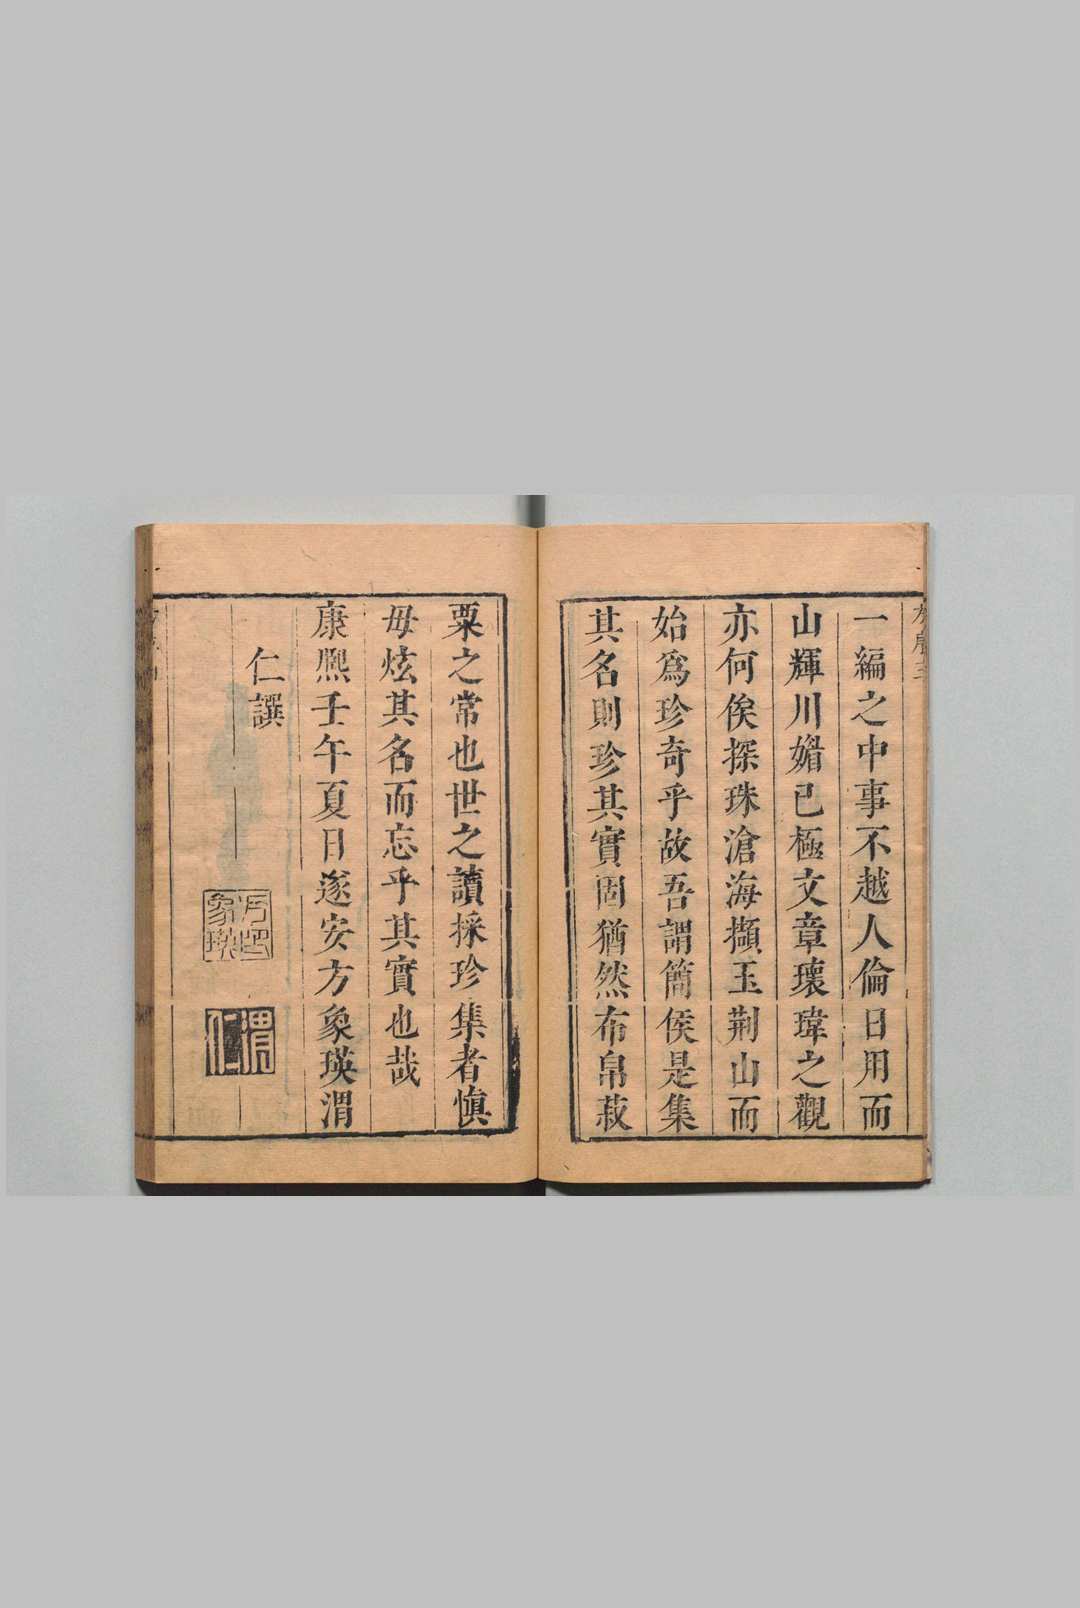 一編之中事不越人倫日用而
山輝川媚已極文章瓌瑋之觀
亦何俟探珠滄海擷玉荆山而
始爲珍奇乎故吾謂簡侯是集
其名則珍其實固猶然布帛菽
粟之常也世之讀採珍集者愼
毋炫其名而忘乎其實也哉
康熈壬午夏日遂安方象瑛渭
仁譔
方印
象瑛
渭
仁